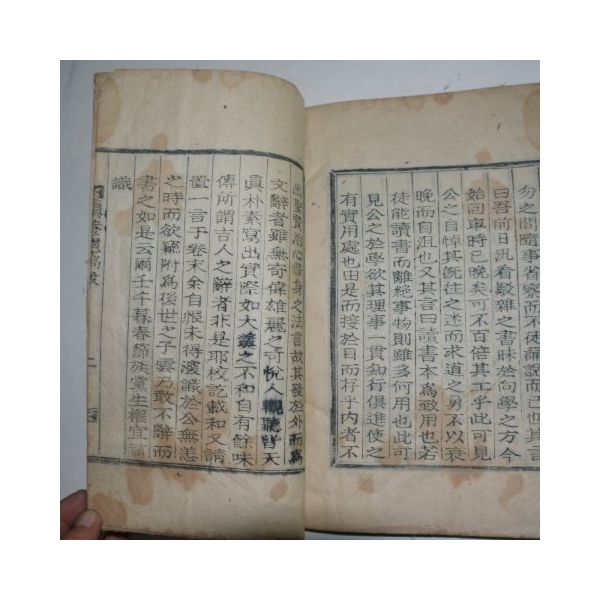 勿之間隨事省察而不徒論說而已也其言
曰吾前日汎看駁雜之書昧於向學之方今
始回車時已晚矣可不百倍其工乎此可見
公之自悼其旣往之迷而求道之勇不以衰
晚而自沮也又其言曰讀書本爲致用也若
徒能讀書而離絶事物則雖多何用也此可
見公之於學欲其理事一貫知行俱進使之
有實用處也由是而接於目而存乎內者不
出聖賢治心修身之法言故其發於外而爲
文辭者雖無奇偉雄麗之可悅人觀聽皆天
眞朴素寫出實際如大羹之不和自有餘味
傳所謂吉人之辭者非是耶校訖載和又請
置一言于卷末余自恨未得濩識於公無恙
之時而欲竊附爲後世之子雲乃敢不辭而
書之如是云爾壬午暮春節族黨生權宜
識